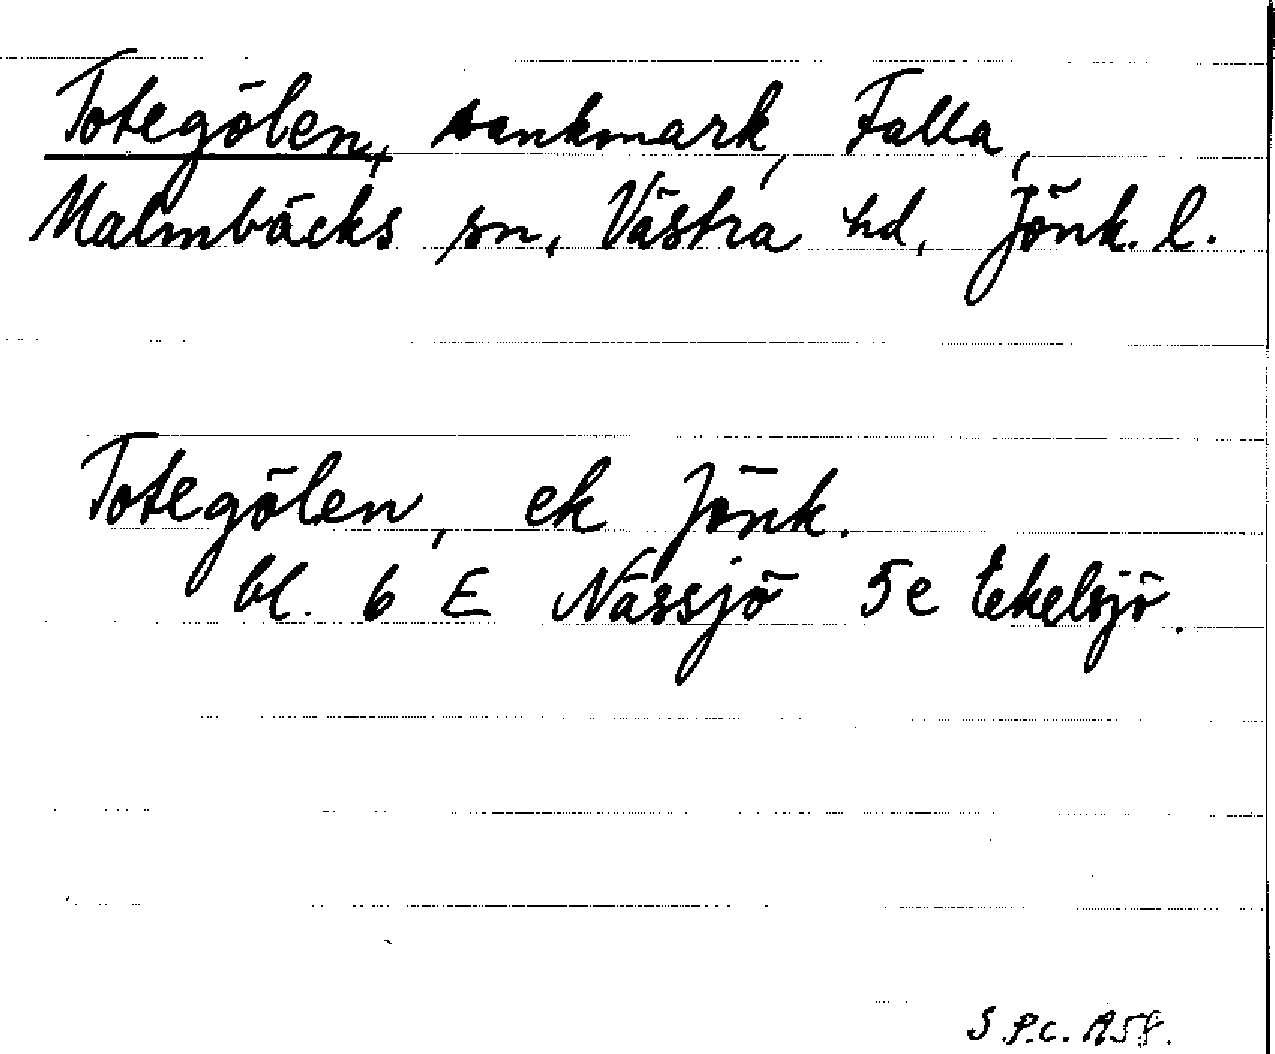 Totegölen, sankmark, Falla,
Malmbäcks sn, Västra hd, Jönk. l.
Totegölen, ek Jönk.
bl. 6 E Nässjö 5e Ekelsjö.
S.P.C. 1958.